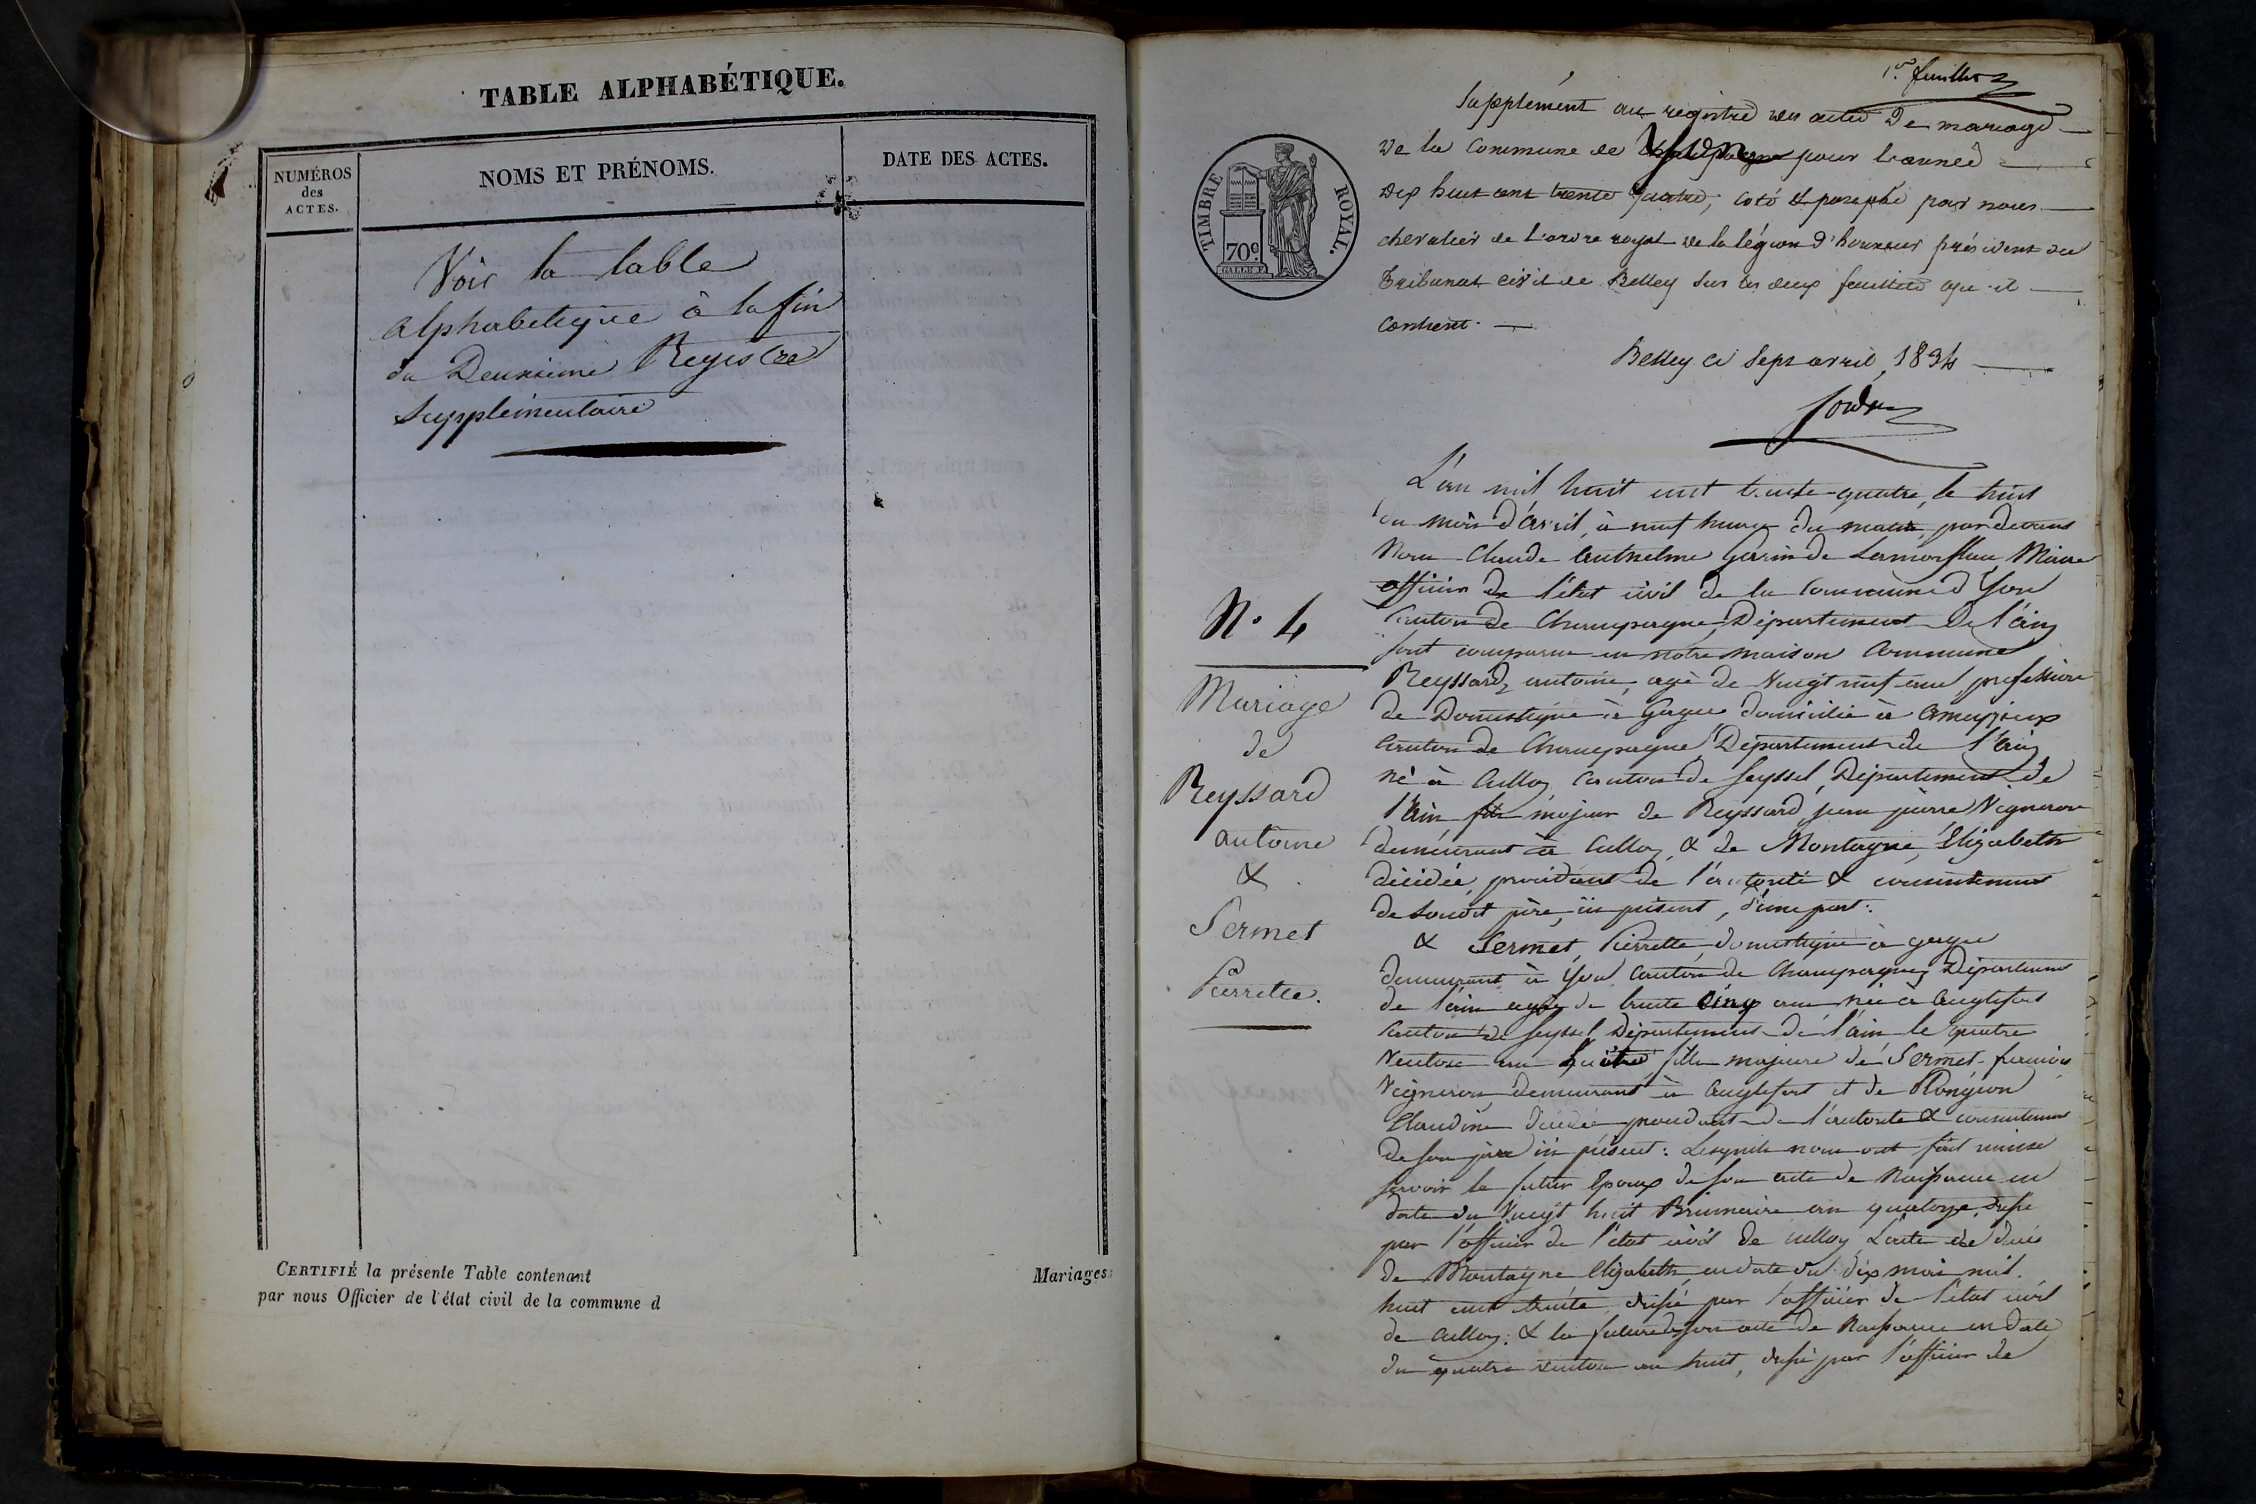 TABLE ALPHABÉTIQUE.
NUMÉROS
des
ACTES.
NOMS ET PRÉNOMS.
DATE DES ACTES.
Voir la table
alphabetique à la fin
du Deuxième Registre
Supplémentaire
CERTIFIÉ la présente Table contenant
Mariages
par nous Officier de l'état civil de la commune d
1er feuillet
Supplément au registre des actes de mariage
de la Commune de Yon pour l'année
dix huit cent trente quatre, coté & paraphé par nous
chevalier de l'ordre royal de la légion d'honneur président du
Tribunal civil de Belley sur les deux feuillets que il
contient.
Belley ce sept avril 1834
TIMBRE ROYAL.
70c
L'an mil huit cent trente-quatre, le huit
du mois d'avril, à neuf heures du matin, pardevant
Nous Claude Anthelme Garin de Lamorflan, Maire
officier de l'état civil de la Commune d'Yon
Canton de Champagne, Département de l'ain
sont comparus en notre maison Commune
Reyssard, antoine, agé de vingt neuf ans, profession
de Domestique à Gages domicilié à ameyzieux
Canton de Champagne, Département de l'ain
né à Culloz Canton de Seyssel, Département de
l'ain fils majeur de Reyssard, jean pierre Vigneron
demeurant à Culloz, & de Montagne, Elizabeth
décédée, procédant de l'autorité & consentement
de sondit père, ici présent, d'une part:
& Sermet, Pierrette domestique à gages
demeurant à Yon Canton de Champagne, Département
de l'ain agée de trente cinq ans née à anglefort
Canton de Seyssel, Département de l'ain le quatre
Ventose an huit fille majeure de Sermet françois
Vigneron, demeurant à anglefort et de Rongeon
Claudine décédée procédant de l'autorité & consentement
de son père ici présent: Lesquels nous ont fait remise
savoir le futur Epoux de son acte de Naissance en
date du Vingt huit Brumaire an quatorze, dressé
par l'officier de l'état civil de culloz L'acte de décès
de Montagne Elizabeth en date du dix mai mil
huit cent trente, dressé par l'officier de l'état civil
de Culloz: & la future de son acte de Naissance en date
du quatre ventose an huit, dressé par l'officier de
N° 4
Mariage
de
Reyssard
antoine
&
Sermet
Pierrette.